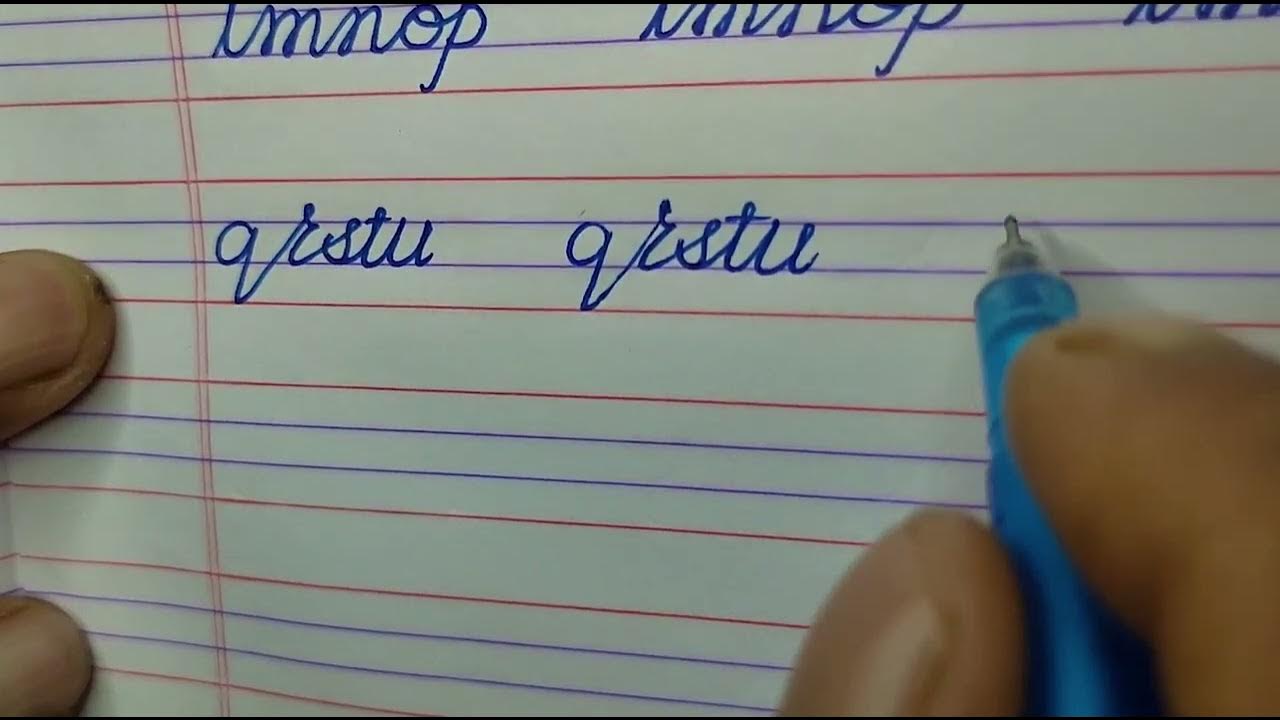 lmnop lmnop
qrstu qrstu